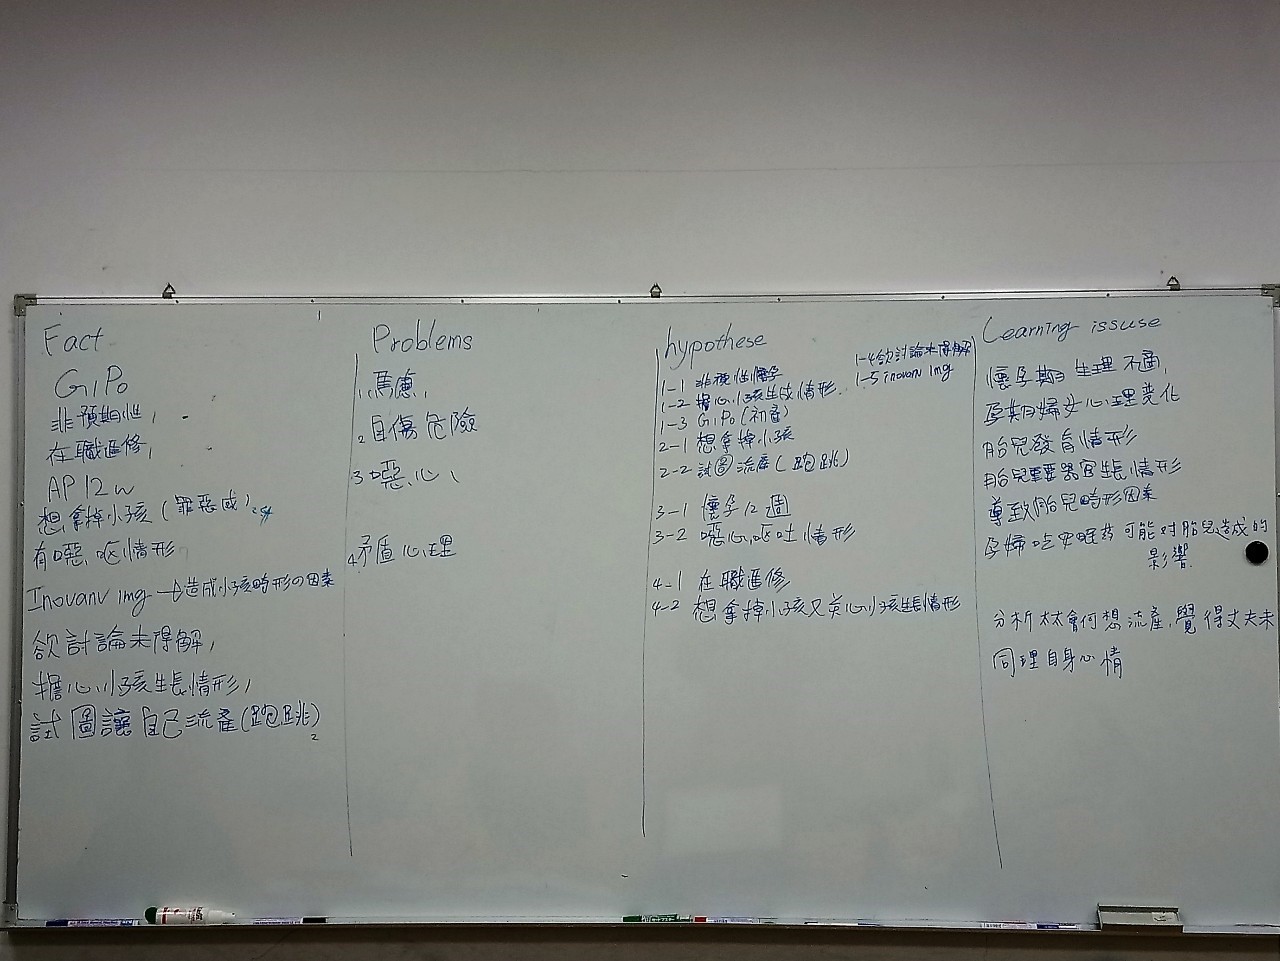 Fact
G1P0
非預期性,
在職進修,
AP12w
想拿掉小孩(罪惡感)
有噁、嘔情形
Inovanv 1mg → 造成小孩畸形の因素
欲討論未得解,
擔心小孩生長情形,
試圖讓自己流產(跑跳)2
Problems
1.焦慮,
2自傷危險
3噁心、
4矛盾心理
hypothese
1-1 非預期性懷孕
1-2 擔心小孩生成情形.
1-3 G1P0(初產)
1-4欲討論未得解
1-5 inovanv 1mg
2-1 想拿掉小孩
2-2 試圖流產(跑跳)
3-1 懷孕12週
3-2 噁心、嘔吐情形
4-1 在職進修
4-2 想拿掉小孩又关心小孩生長情形
Learning issuse
懷孕期生理不適,
孕期婦女心理变化
胎兒發育情形
胎兒重要器官生長情形
導致胎兒畸形因素
孕婦吃安眠葯可能对胎兒造成的
影響.
分析太太會何想流產,覺得丈夫未
同理自身心情